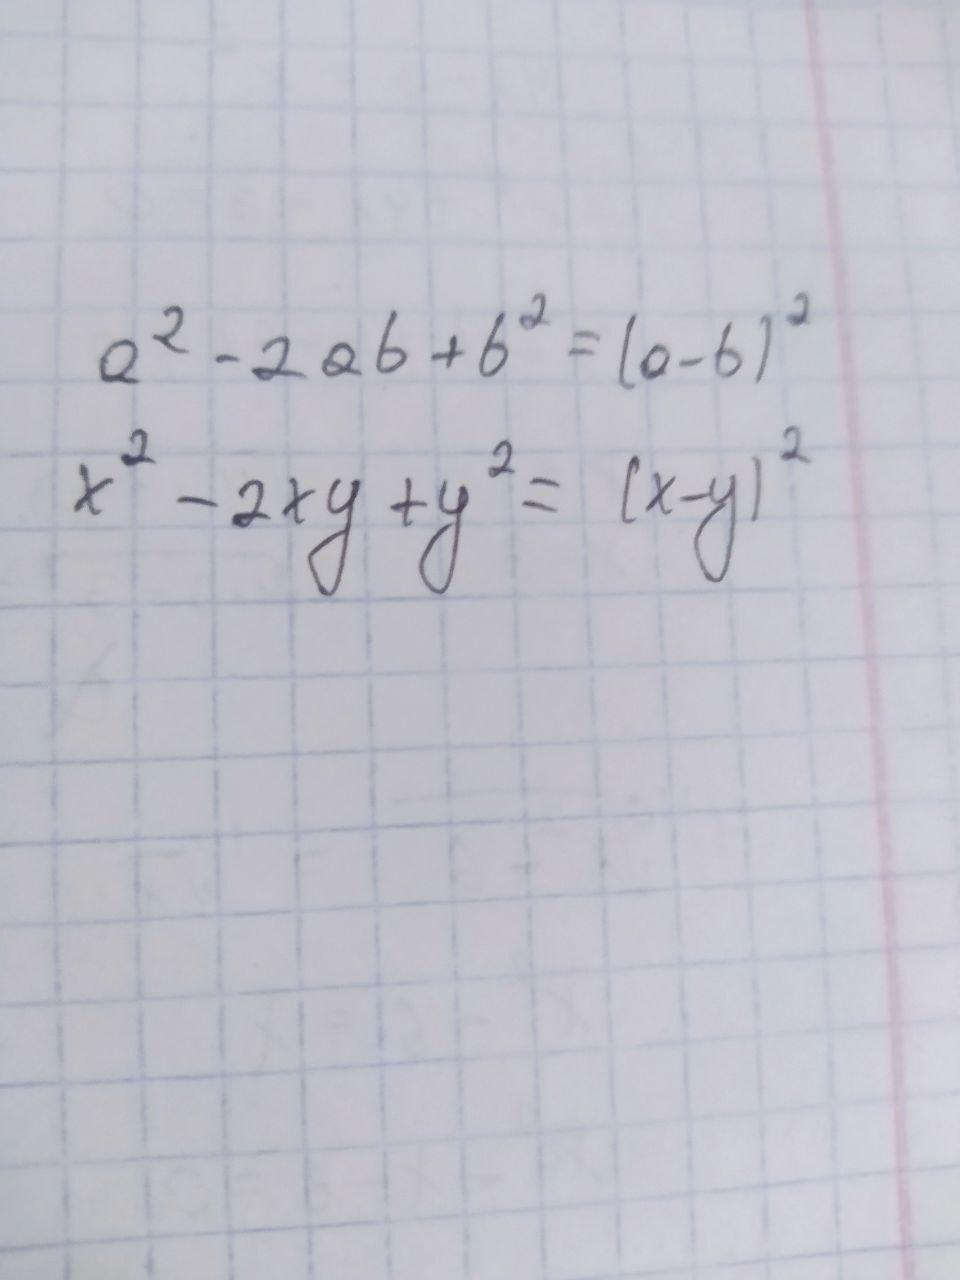 a² - 2ab + b² = (a-b)²
x² - 2xy + y² = (x-y)²